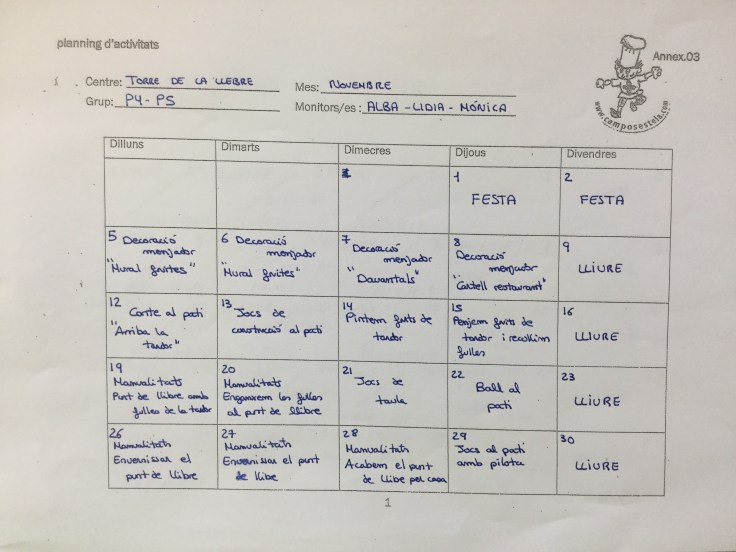 planning d'activitats
Annex.03
Centre: TORRE DE LA LLEBRE
Mes: NOVEMBRE
Grup: P4-P5
Monitors/es: ALBA - LIDIA - MÓNICA
www.camposestela.com
Dilluns Dimarts Dimecres Dijous Divendres
1
FESTA
2
FESTA
5 Decoració
menjador
"Mural fruites"
6 Decoració
menjador
"Mural fruites"
7
Decoració
menjador
"Davantals"
8
Decoració
menjador
"Cartell restaurant"
9
LLIURE
12
Conte al pati
"Arriba la
tardor"
13
Jocs de
construcció al pati
14
Pintem fruits de
tardor
15
Penjem fruits de
tardor i recollim
fulles
16
LLIURE
19
Manualitats
Punt de llibre amb
fulles de la tardor
20
Manualitats
Enganxem les fulles
al punt de llibre
21
Jocs de
taula
22
Ball al
pati
23
LLIURE
26
Manualitats
Envernissar el
punt de llibre
27
Manualitats
Envernissar el punt
de llibre
28
Manualitats
Acabem el punt
de llibre per casa
29
Jocs al pati
amb pilota
30
LLIURE
1